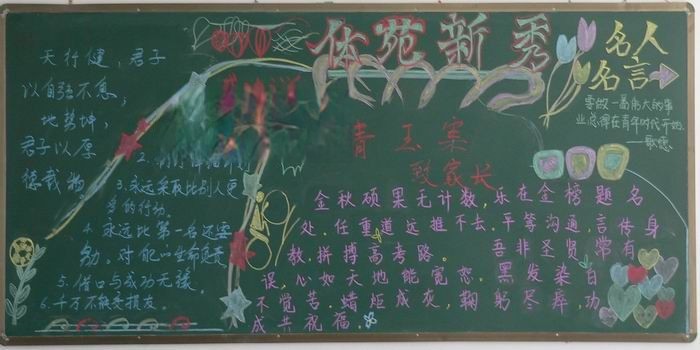 体苑新秀
天行健，君子
以自强不息，
地势坤，
君子以厚
德载物。
3.永远采取比别人更
多的行动。
4.永远比第一名还要
努。对能以生命负责
5.借口与成功无缘
6.千万不能交损友。
青玉案
致家长
金秋硕果无计数，乐在金榜题名
处。任重道远推不去。平等沟通，言传身
教。拼搏高考路。吾非圣贤常有
误，心如天地能宽恕。黑发染白
不觉苦。蜡炬成灰，鞠躬尽瘁，功
成共祝福。
名人
名言
要做一番伟大的事
业总得在青年时代开始。
——歌德